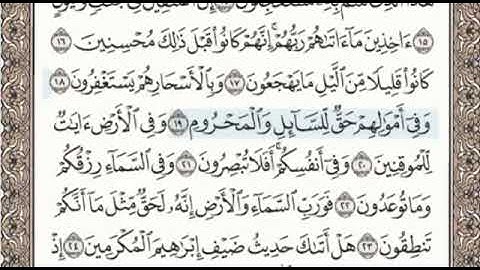 ءَاخِذِينَ مَآ ءَاتَىٰهُمْ رَبُّهُمْ ۚ إِنَّهُمْ كَانُوا۟ قَبْلَ ذَٰلِكَ مُحْسِنِينَ ١٦
كَانُوا۟ قَلِيلًا مِّنَ ٱلَّيْلِ مَا يَهْجَعُونَ ١٧ وَبِٱلْأَسْحَارِ هُمْ يَسْتَغْفِرُونَ ١٨
وَفِىٓ أَمْوَٰلِهِمْ حَقٌّ لِّلسَّآئِلِ وَٱلْمَحْرُومِ ١٩ وَفِى ٱلْأَرْضِ ءَايَٰتٌ
لِّلْمُوقِنِينَ ٢٠ وَفِىٓ أَنفُسِكُمْ ۚ أَفَلَا تُبْصِرُونَ ٢١ وَفِى ٱلسَّمَآءِ رِزْقُكُمْ
وَمَا تُوعَدُونَ ٢٢ فَوَرَبِّ ٱلسَّمَآءِ وَٱلْأَرْضِ إِنَّهُۥ لَحَقٌّ مِّثْلَ مَآ أَنَّكُمْ
تَنطِقُونَ ٢٣ هَلْ أَتَىٰكَ حَدِيثُ ضَيْفِ إِبْرَٰهِيمَ ٱلْمُكْرَمِينَ ٢٤ إِذْ